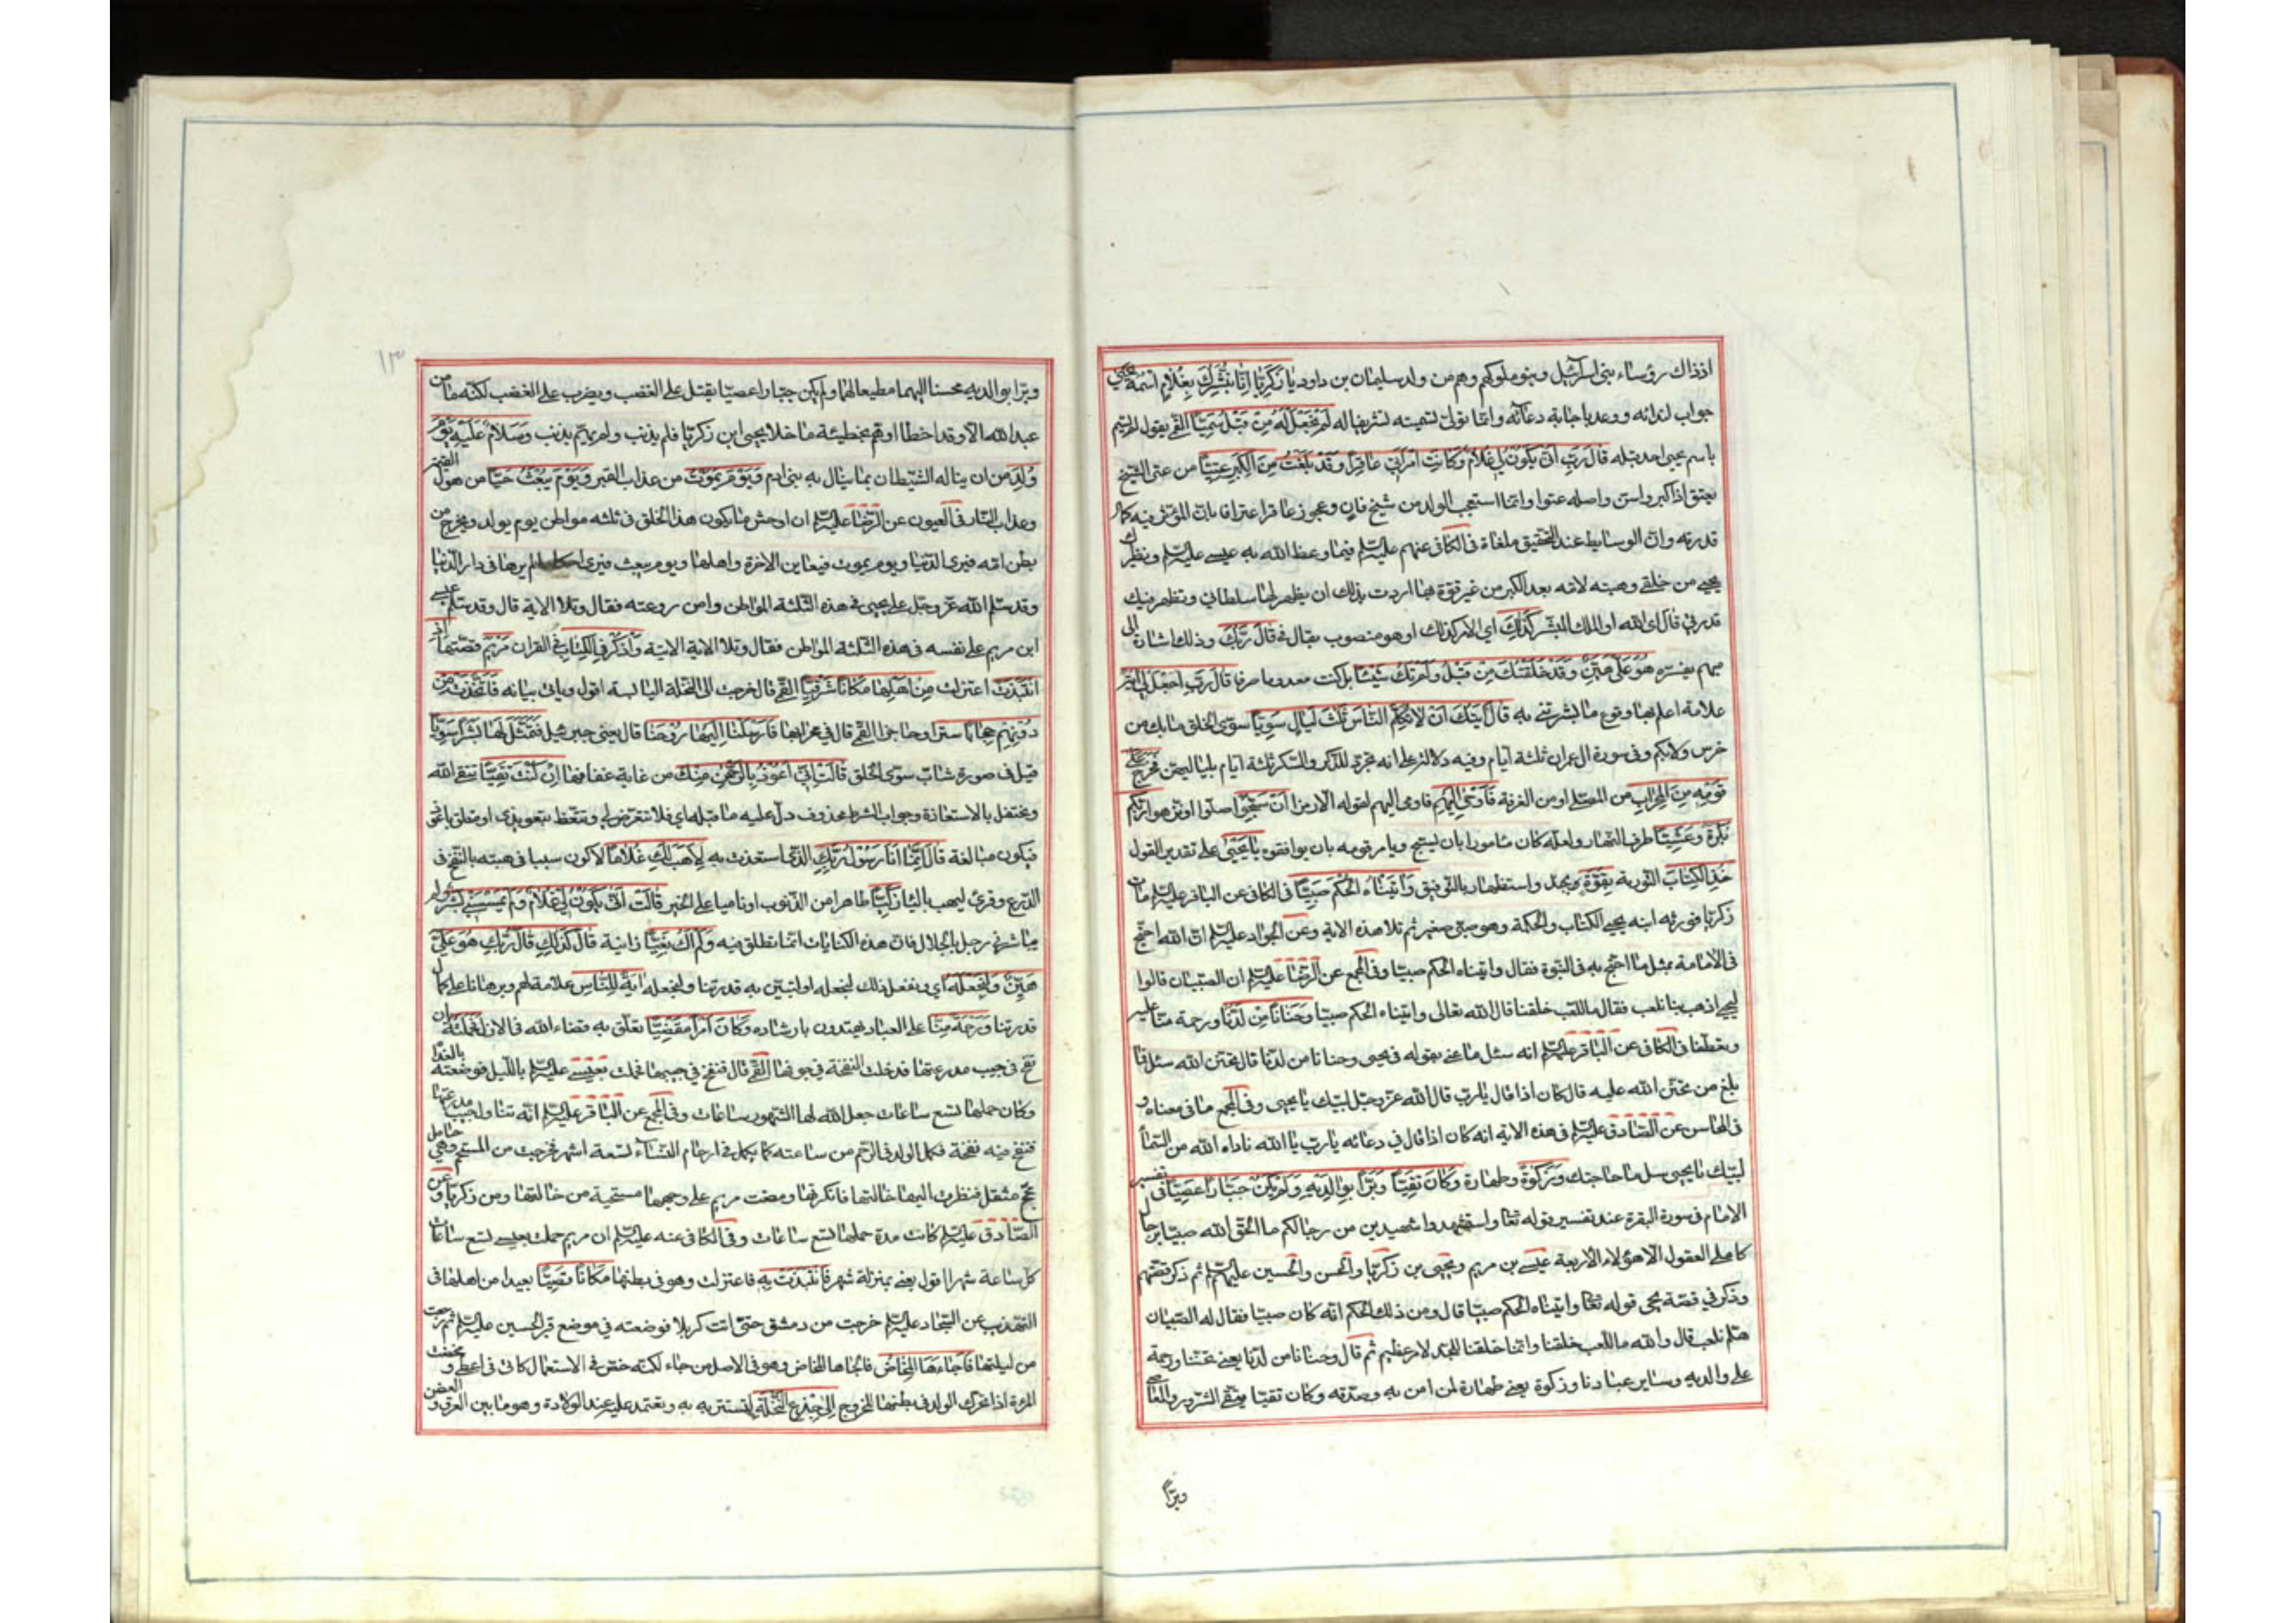 اذذاك رؤساء بنی اسرآئیل و بنو ملوکهم و هم من ولد سلیمان بن داود یٰا زَکَرِیّٰا اِنّٰا نُبَشِّرُكَ بِغُلٰامٍ اسْمُهُ یَحْییٰ
جواب لندائه و وعد باجابة دعائه و انما تولی تسمیته تشریفا له لَمْ نَجْعَلْ لَهُ مِنْ قَبْلُ سَمِیّاً القمی یقول لم یسم
باسم یحیی احد قبله قٰالَ رَبِّ اَنّٰی یَکُونُ لِی غُلٰامٌ وَکٰانَتِ امْرَأَتِی عٰاقِراً وَقَدْ بَلَغْتُ مِنَ الْکِبَرِ عِتِیّاً من عتی الشیخ
یعتو اذا کبر و اسن و اصله عتوا و انما استعجب الولد من شیخ فان و عجوز عاقر اعترافا بان المؤثر فیه کمال
قدرته و ان الوسایط عند التحقیق ملغاة فی الکافی عنهم علیه السلم فیما وعظ الله به عیسی علیه السلم و نظیرك
یحیی من خلقی وهبته لامه بعد الکبر من غیر قوة بها اردت بذلك ان یظهر لها سلطانی و تظهر فیك
قدرتی قال ای الله او الملك المبشر کَذٰلِكَ ای الامر کذلك او هو منصوب بقال فی قٰالَ رَبُّكَ و ذلك اشارة الی
مبهم یفسره هُوَ عَلَیَّ هَیِّنٌ وَقَدْ خَلَقْتُكَ مِنْ قَبْلُ وَلَمْ تَكُ شَیْئاً بل کنت معدوما صرفا قٰالَ رَبِّ اجْعَلْ لِی اٰیَةً
علامة اعلم بها وقوع ما بشرتنی به قٰالَ اٰیَتُكَ اَنْ لٰا تُکَلِّمَ النّٰاسَ ثَلٰثَ لَیٰالٍ سَوِیّاً سوی الخلق ما بك من
خرس و لا بکم و فی سورة ال عمران ثلثة ایام و فیه دلالة علی انه تجرد للذکر و الشکر ثلثة ایام بلیالیهن فَخَرَجَ عَلیٰ
قَوْمِهِ مِنَ الْمِحْرٰابِ من المصلی او من الغرفة فَاَوْحیٰ اِلَیْهِمْ فاومی الیهم لقوله الا رمزا اَنْ سَبِّحُوا صلوا او نزهوا ربکم
بُکْرَةً وَعَشِیّاً طرفی النهار و لعله کان مامورا بان یسبح و یامر قومه بان یوافقوه یٰا یَحْییٰ علی تقدیر القول
خُذِ الْکِتٰابَ التوریة بِقُوَّةٍ بجد و استظهار بالتوفیق وَاٰتَیْنٰاهُ الْحُکْمَ صَبِیّاً فی الکافی عن الباقر علیه السلم مات
زکریا فورثه ابنه یحیی الکتاب و الحکمة و هو صبی صغیر ثم تلا هذه الایة و عن الجواد علیه السلم ان الله احتج
فی الامامة بمثل ما احتج به فی النبوة فقال و اتیناه الحکم صبیا و فی المجمع عن الرضا علیه السلم ان الصبیان قالوا
لیحیی اذهب بنا نلعب فقال ما للعب خلقنا قال الله تعالی و اتیناه الحکم صبیا وَحَنٰاناً مِنْ لَدُنّٰا و رحمة منا علیه
و تعطفنا فی الکافی عن الباقر علیه السلم انه سئل ما عنی بقوله فی یحیی و حنانا من لدنا قال تحنن الله سئل فما
بلغ من تحنن الله علیه قال کان اذا قال یا رب قال الله عز و جل لبیك یا یحیی و فی المجمع ما فی معناه و
فی المحاسن عن الصادق علیه السلم فی هذه الایة انه کان اذا قال فی دعائه یا رب یا الله ناداه الله من السماء
لبیك یا یحیی سل ما حاجتك وَزَکٰوةً و طهارة وَکٰانَ تَقِیّاً وَبَرّاً بِوٰالِدَیْهِ وَلَمْ یَکُنْ جَبّٰاراً عَصِیّاً فی تفسیر
الامام فی سورة البقرة عند تفسیر قوله تعا و استشهدوا شهیدین من رجالکم ما الحق الله صبیا برجال
کاملی العقول الا هؤلاء الاربعة عیسی بن مریم و یحیی بن زکریا و الحسن و الحسین علیهم السلم ثم ذکر قصتهم
و ذکر فی قصة یحیی قوله تعا و اتیناه الحکم صبیا قال و من ذلك الحکم انه کان صبیا فقال له الصبیان
هلم نلعب قال والله ما للعب خلقنا و انما خلقنا للجد لامر عظیم ثم قال و حنانا من لدنا یعنی تحننا و رحمة
علی والدیه و سایر عبادنا و زکوة یعنی طهارة لمن امن به و صدقه و کان تقیا یتقی الشرور و المعاصی
وبرّاً
١٣
وبرّا بوالدیه محسنا الیهما مطیعا لهما و لم یکن جبارا عصیا یقتل علی الغضب و یضرب علی الغضب لکنه ما من
عبد لله الا و قد اخطا او هم بخطیئة ما خلا یحیی ابن زکریا فلم یذنب و لم یهم بذنب وَسَلٰامٌ عَلَیْهِ یَوْمَ
وُلِدَ من ان یناله الشیطان بما ینال به بنی ادم وَیَوْمَ یَمُوتُ من عذاب القبر وَیَوْمَ یُبْعَثُ حَیّاً من هول القیمة
و عذاب النار فی العیون عن الرضا علیه السلم ان اوحش ما یکون هذا الخلق فی ثلثه مواطن یوم یولد و یخرج من
بطن امه فیری الدنیا و یوم یموت فیعاین الاخرة و اهلها و یوم یبعث فیری احکاما لم یرها فی دار الدنیا
و قد سلم الله عز و جل علی یحیی فی هذه الثلثة المواطن و امن روعته فقال و تلا الایة قال و قد سلم عیسی
ابن مریم علی نفسه فی هذه الثلثة المواطن فقال و تلا الایة الاتیة وَاذْکُرْ فِی الْکِتٰابِ فی القران مَرْیَمَ قصتها اِذِ
انْتَبَذَتْ اعتزلت مِنْ اَهْلِهٰا مَکٰاناً شَرْقِیّاً القمی قال خرجت الی النخلة الیابسة اقول و یاتی بیانه فَاتَّخَذَتْ مِنْ
دُونِهِمْ حِجٰاباً سترا و حاجزا القمی قال فی محرابها فَاَرْسَلْنٰا اِلَیْهٰا رُوحَنٰا قال یعنی جبرئیل فَتَمَثَّلَ لَهٰا بَشَراً سَوِیّاً
قیل فی صورة شاب سوی الخلق قٰالَتْ اِنِّی اَعُوذُ بِالرَّحْمٰنِ مِنْكَ من غایة عفافها اِنْ کُنْتَ تَقِیّاً تتقی الله
و تحتفل بالاستعاذة و جواب الشرط محذوف دل علیه ما قبله ای فلا تتعرض لی و تتعظ بتعویذی او متعلق باعوذ
فیکون مبالغة قٰالَ اِنَّمٰا اَنَا رَسُولُ رَبِّكِ الذی استعذت به لِاَهَبَ لَكِ غُلٰاماً لاکون سببا فی هبته بالنفخ فی
الدرع و قرئ لیهب بالیاء زَکِیّاً طاهرا من الذنوب او نامیا علی الخیر قٰالَتْ اَنّٰی یَکُونُ لِی غُلٰامٌ وَلَمْ یَمْسَسْنِی بَشَرٌ و لم
یباشرنی رجل بالحلال فان هذه الکنایات انما تطلق فیه وَلَمْ اَكُ بَغِیّاً زانیة قٰالَ کَذٰلِكِ قٰالَ رَبُّكِ هُوَ عَلَیَّ
هَیِّنٌ وَلِنَجْعَلَهُ ای و نفعل ذلك لنجعله او لنبین به قدرتنا و لنجعله اٰیَةً لِلنّٰاسِ علامة لهم و برهانا علی کمال
قدرتنا وَرَحْمَةً مِنّٰا علی العباد یهتدون بارشاده وَکٰانَ اَمْراً مَقْضِیّاً تعلق به قضاء الله فی الازل فَحَمَلَتْهُ بان
نفخ فی جیب مدرعتها فدخلت النفخة فی جوفها القمی قال فنفخ فی جیبها فحملت بعیسی علیه السلم باللیل فوضعته بالغداة
و کان حملها تسع ساعات جعل الله لها الشهور ساعات و فی المجمع عن الباقر علیه السلم انه تناول جیب مدرعتها
فنفخ فیه نفخة فکمل الولد فی الرحم من ساعته کما یکمل فی ارحام النساء تسعة اشهر فخرجت من المستحم و هی حامل
محج مثقل فنظرت الیها خالتها فانکرتها و مضت مریم علی وجهها مستحیة من خالتها و من زکریا و عن
الصادق علیه السلم کانت مدة حملها تسع ساعات و فی الکافی عنه علیه السلم ان مریم حملت بعیسی تسع ساعات
کل ساعة شهرا اقول یعنی بمنزلة شهر فَانْتَبَذَتْ بِهِ فاعتزلت و هو فی بطنها مَکٰاناً قَصِیّاً بعیدا من اهلها فی
التهذیب عن السجاد علیه السلم خرجت من دمشق حتی اتت کربلا فوضعته فی موضع قبر الحسین علیه السلم ثم رجعت
من لیلتها فَاَجٰاءَهَا الْمَخٰاضُ فالجاها المخاض و هو فی الاصل من جاء لکنه خص فی الاستعمال کاتی فی اعطی و مخضت
المرءة اذا تحرك الولد فی بطنها للخروج اِلیٰ جِذْعِ النَّخْلَةِ لتستتر به و تعتمد علیه عند الولادة و هو ما بین العرق و الغصن